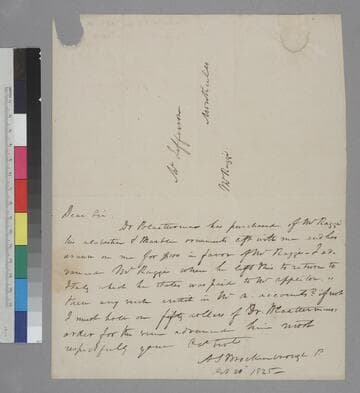 Mr Jefferson
Monticello
Mr Raggi
Dear Sir
Dr Blaettermann has purchased of Mr Raggi
his alabaster & Marble ornaments left with me and has
drawn on me for $100 in favor of Mr Raggi— I ad-
vanced Mr Raggi when he left this to return to
Italy which he states was paid to Mr Appleton is
there any such credit in Mr A. accounts? if not
I must hold on fifty dollars of Dr Blaettermann's
order for the sum advanced him most
respectfully your Obt Servt
A S Brockenbrough P.
1825